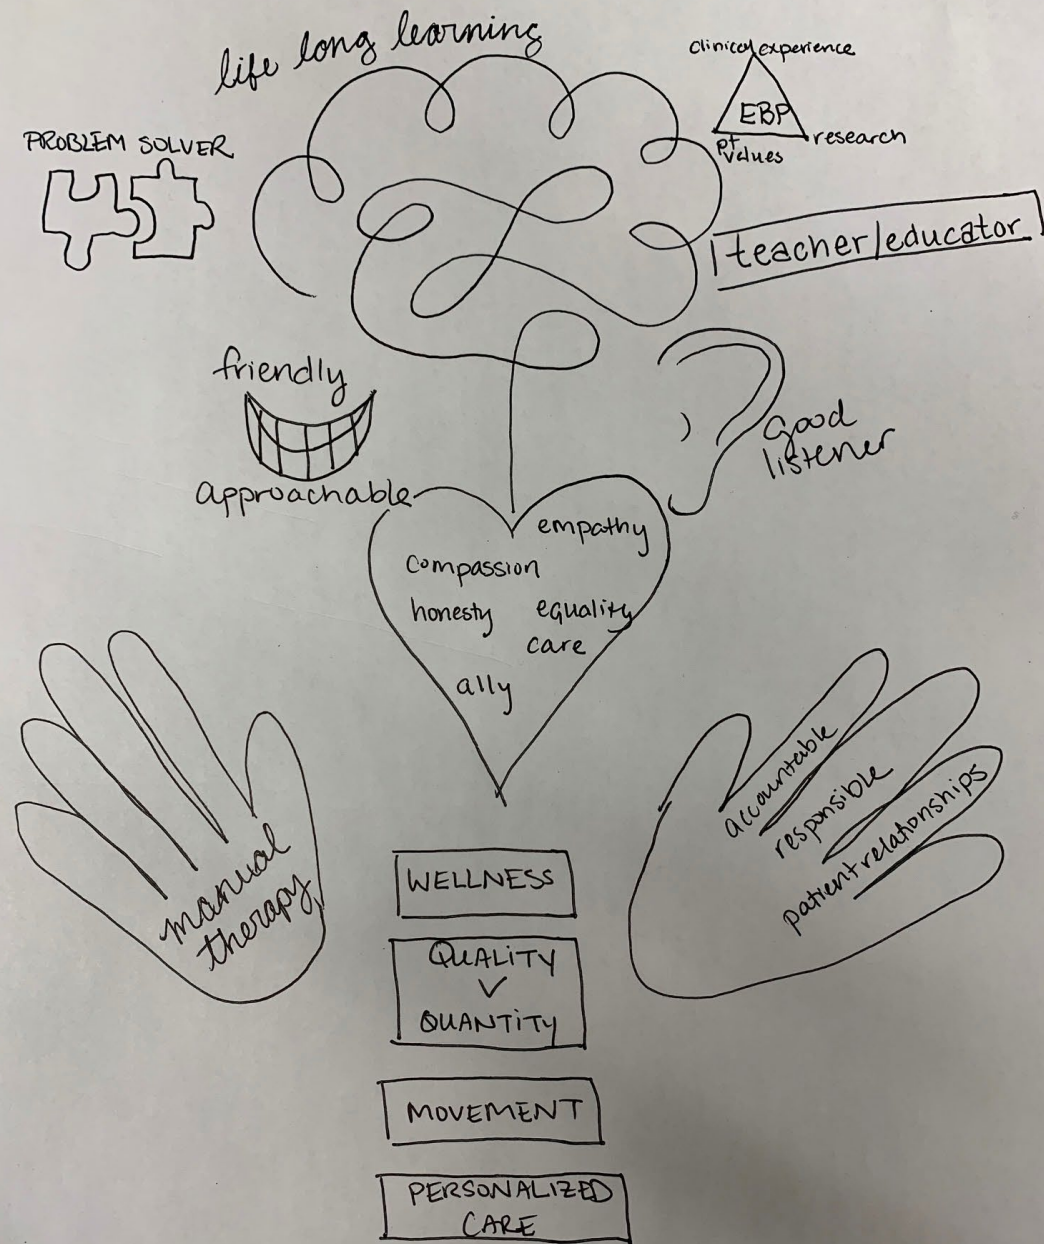 life long learning
clinical experience
EBP
pt values
research
PROBLEM SOLVER
teacher/educator
friendly
approachable
good
listener
empathy
compassion
honesty
equality
care
ally
manual
therapy
accountable
responsible
patient relationships
WELLNESS
QUALITY
V
QUANTITY
MOVEMENT
PERSONALIZED
CARE